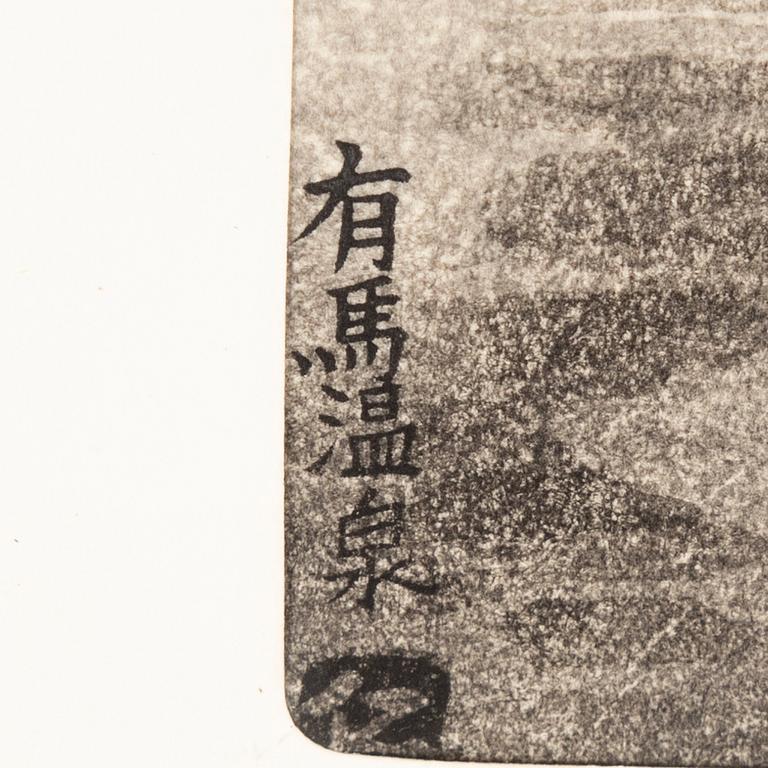 有馬温泉